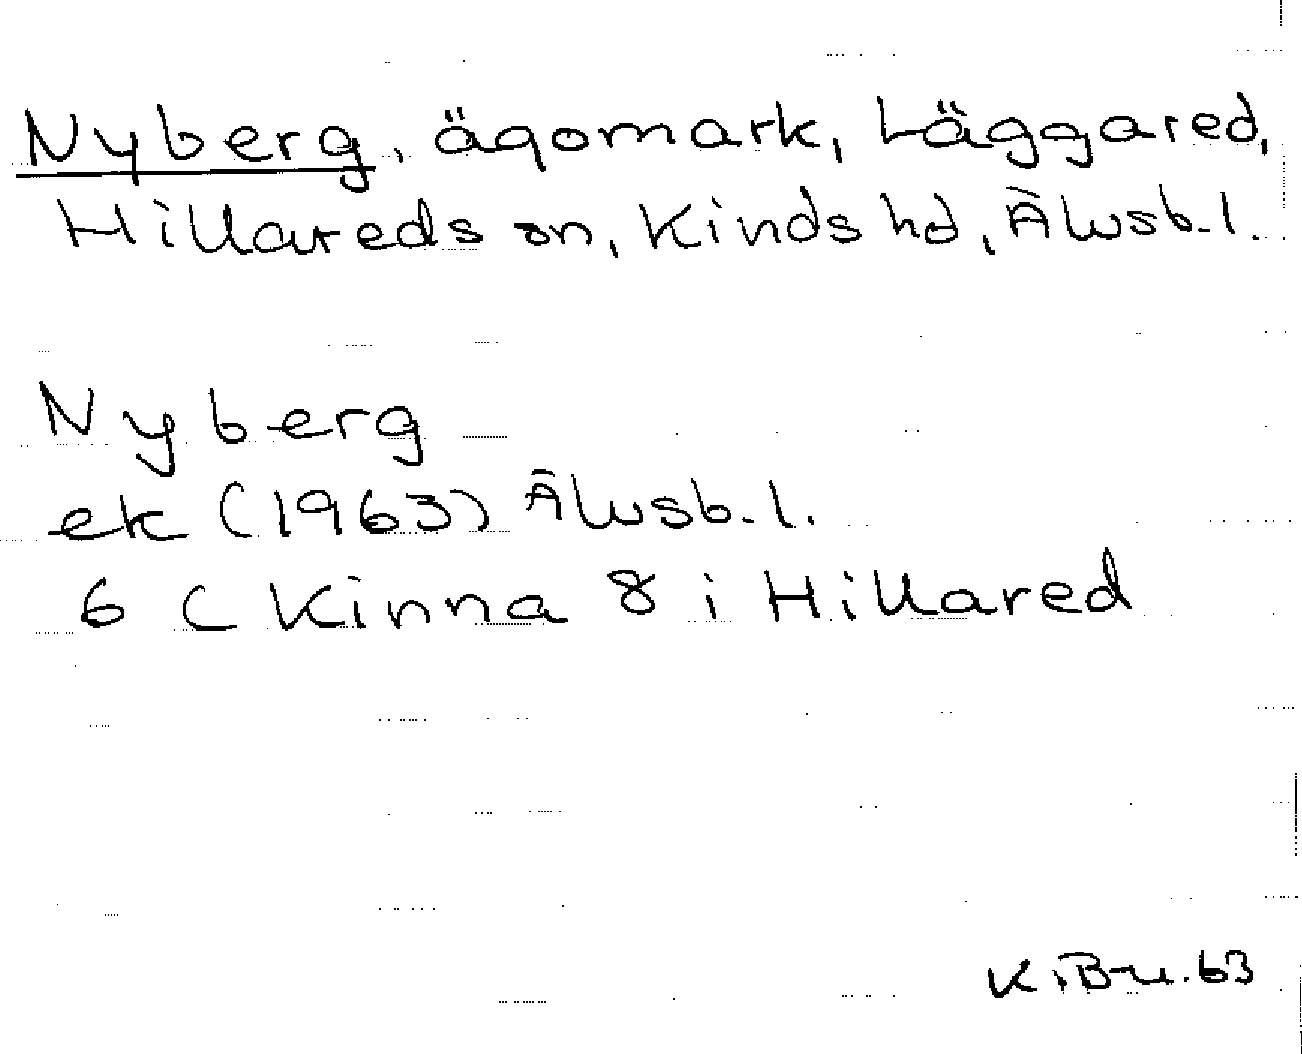 Nyberg, ägomark, Läggared,
Hillareds sn, Kinds hd, Älvsb. l.
Nyberg
ek (1963) Älvsb. l.
6 C Kinna 8 i Hillared
63